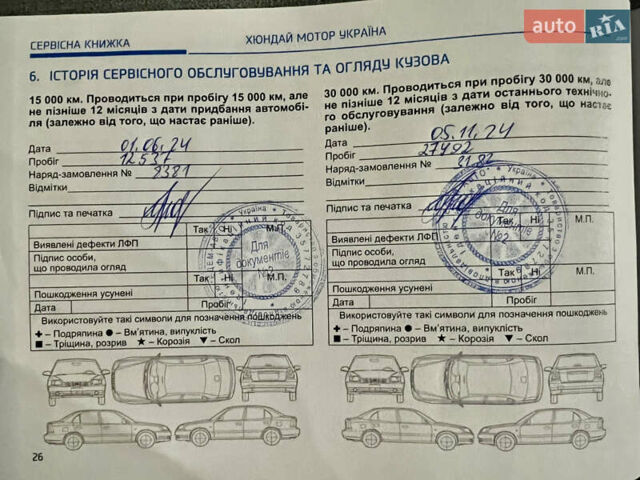 auto RIA.com
СЕРВІСНА КНИЖКА
ХЮНДАЙ МОТОР УКРАЇНА
6. ІСТОРІЯ СЕРВІСНОГО ОБСЛУГОВУВАННЯ ТА ОГЛЯДУ КУЗОВА
15 000 км. Проводиться при пробігу 15 000 км, але
не пізніше 12 місяців з дати придбання автомобі-
ля (залежно від того, що настає раніше).
Дата 01.06.24
Пробіг 12 537
Наряд-замовлення № 8381
Відмітки
Підпис та печатка
Так Ні М.П.
Виявлені дефекти ЛФП
Підпис особи,
що проводила огляд
Так Ні М.П.
Пошкодження усунені
Дата Пробіг
Використовуйте такі символи для позначення пошкоджень
+ – Подряпина ● – Вм'ятина, випуклість
■ – Тріщина, розрив ★ – Корозія ▼ – Скол
Для
документів
№2
30 000 км. Проводиться при пробігу 30 000 км, але
не пізніше 12 місяців з дати останнього технічно-
го обслуговування (залежно від того, що настає
раніше).
Дата 05.11.24
Пробіг 27492
Наряд-замовлення № 2182
Відмітки
Підпис та печатка
Так Ні М.П.
Виявлені дефекти ЛФП
Підпис особи,
що проводила огляд
Так Ні М.П.
Пошкодження усунені
Дата Пробіг
Використовуйте такі символи для позначення пошкоджень
+ – Подряпина ● – Вм'ятина, випуклість
■ – Тріщина, розрив ★ – Корозія ▼ – Скол
Для
документів
№2
26